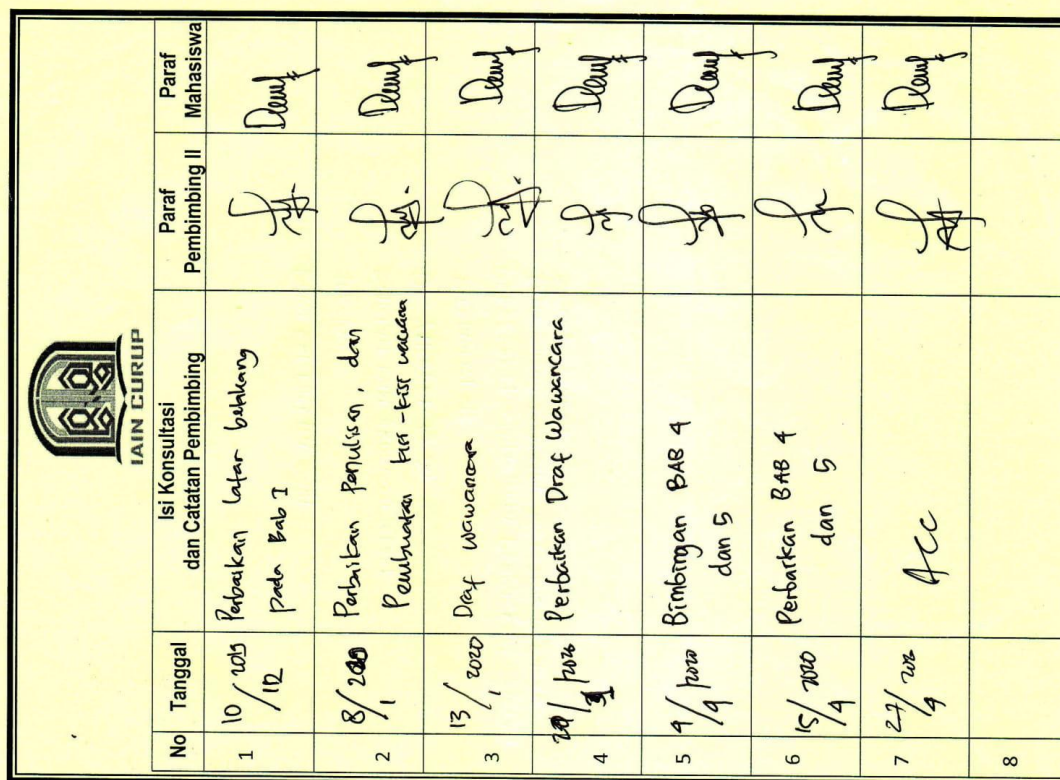 IAIN CURUP
No
Tanggal
Isi Konsultasi
dan Catatan Pembimbing
Paraf
Pembimbing II
Paraf
Mahasiswa
1
10/12 2019
Perbaikan Latar belakang
pada Bab I
2
8/1 2020
Perbaikan Penulisan, dan
Pembuatan kisi-kisi
3
13/1 2020
Draf wawancara
4
2020
Perbaikan Draf Wawancara
5
9/4 2020
Bimbingan BAB 4
dan 5
6
15/4 2020
Perbaikan BAB 4
dan 5
7
27/4 2020
ACC
8